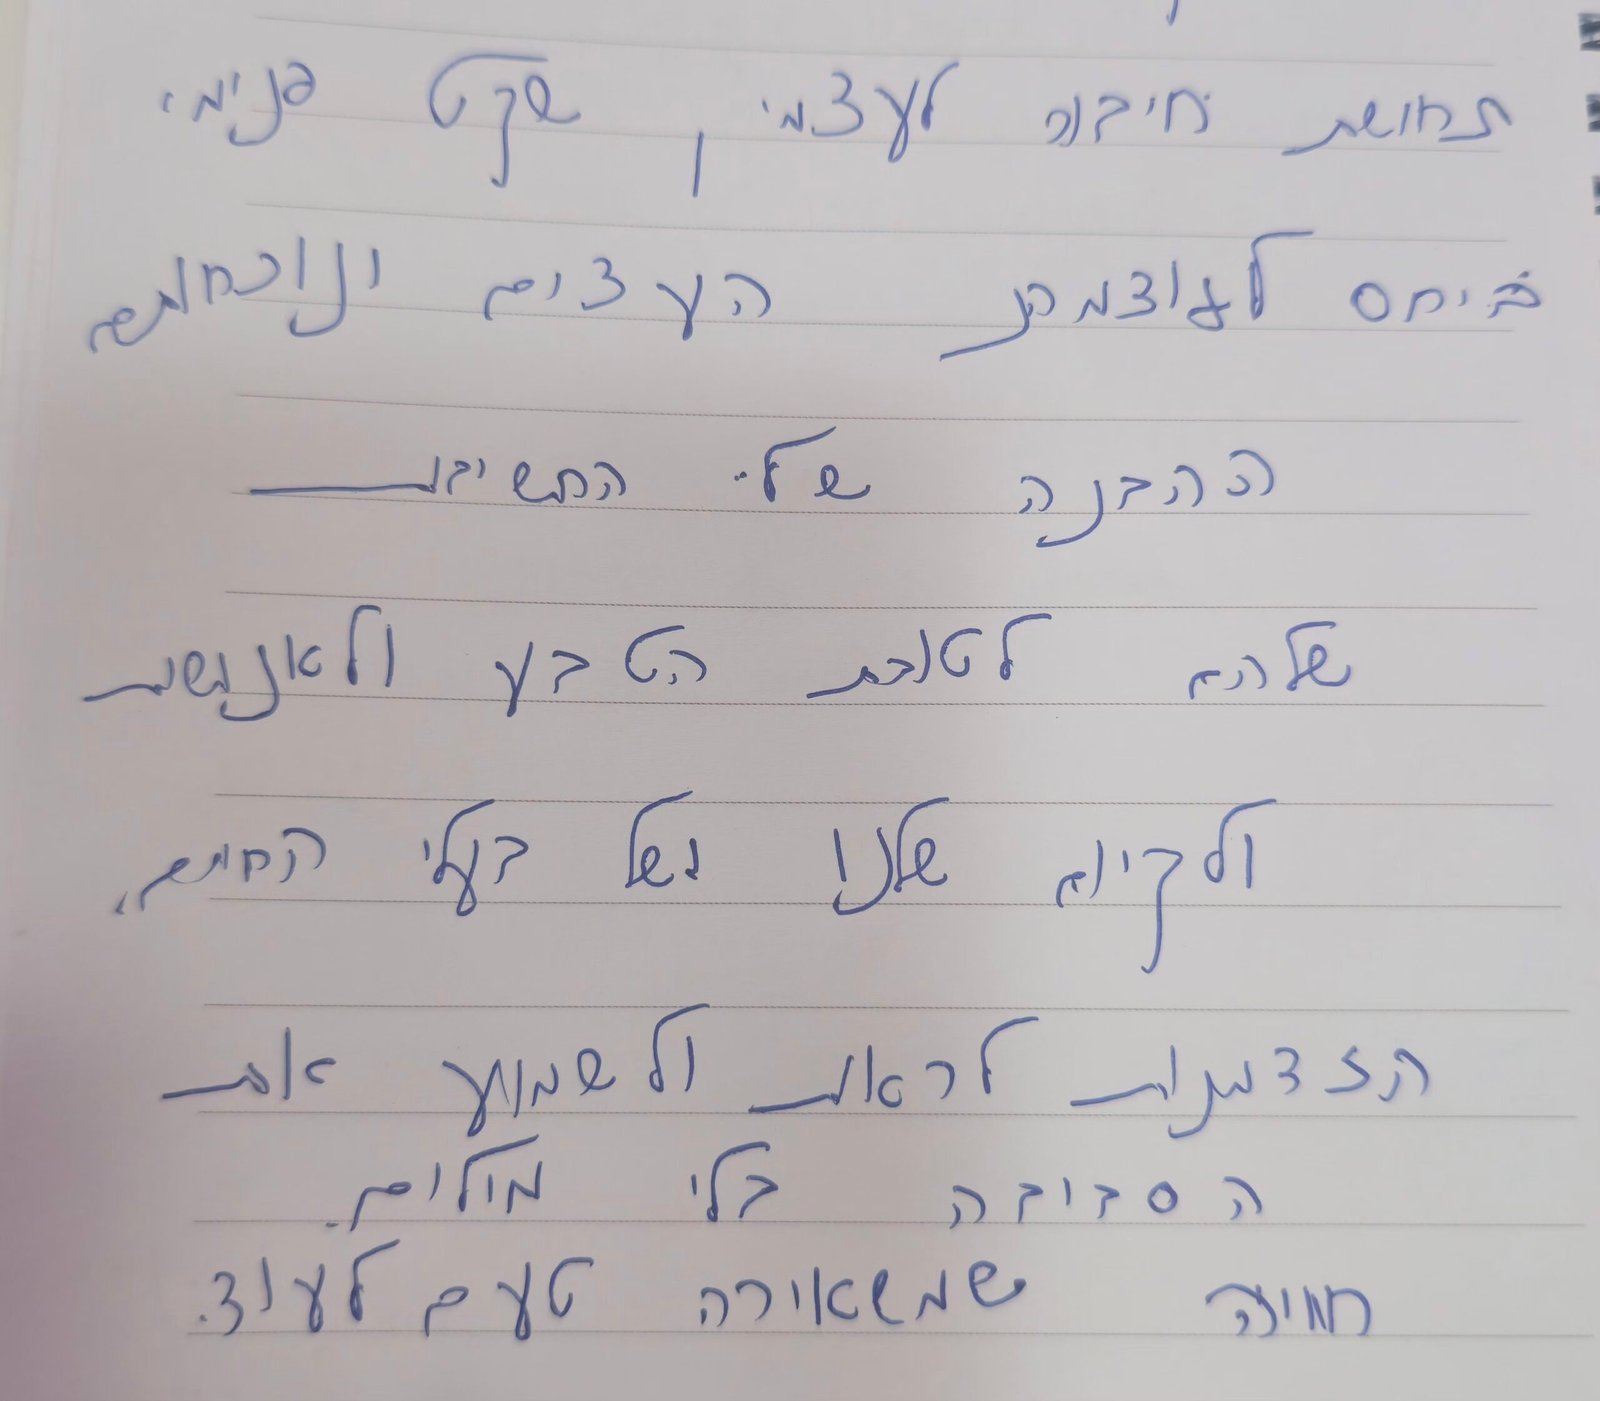 תחושת חיבור לעצמי, שקט פנימי
ביחס לעוצמת העצים ונוכחותם
ההבנה שלי החשיבות
שלהם לטובת הטבע ולאנושות
ולקיום שלנו ושל בעלי החיים.
הזדמנות לראות ולשמוע את
הסביבה בלי מילים.
חוויה שמשאירה טעם לעוד.